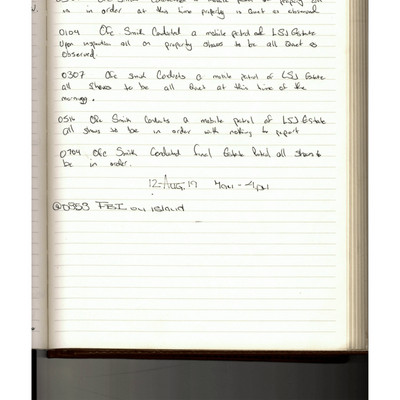 is in order at this time property is Quiet as observed
0104 Ofc Smith Conducted a mobile patrol of LSJ Estate
Upon inspection all on property shows to be all Quiet as
observed.
0307 Ofc Smith Conducts a mobile patrol of LSJ Estate
all shows to be all Quiet at this time of the
morning.
0514 Ofc Smith Conducts a mobile patrol of LSJ Estate
all shows to be in order with nothing to report
0704 Ofc Smith Conducted final Estate Patrol all shows to
be in order.
12-Aug-19
@0858 FBI on island